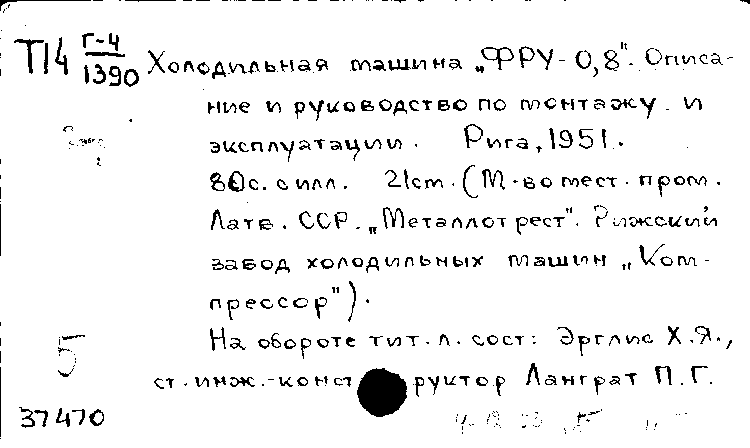 Т14 Г-4
1390 Холодильная машина „ФРУ-0,8". Описа-
ние и руководство по монтажу и
эксплуатации. Рига, 1951.
80с. с илл. 21cm. (М-во мест. пром.
Латв. ССР. „Металлотрест". Рижский
завод холодильных машин „Ком-
прессор").
На обороте тит. л. сост: Эрглис Х.Я.,
5
ст. инж.-конструктор Ланграт П.Г.
37470